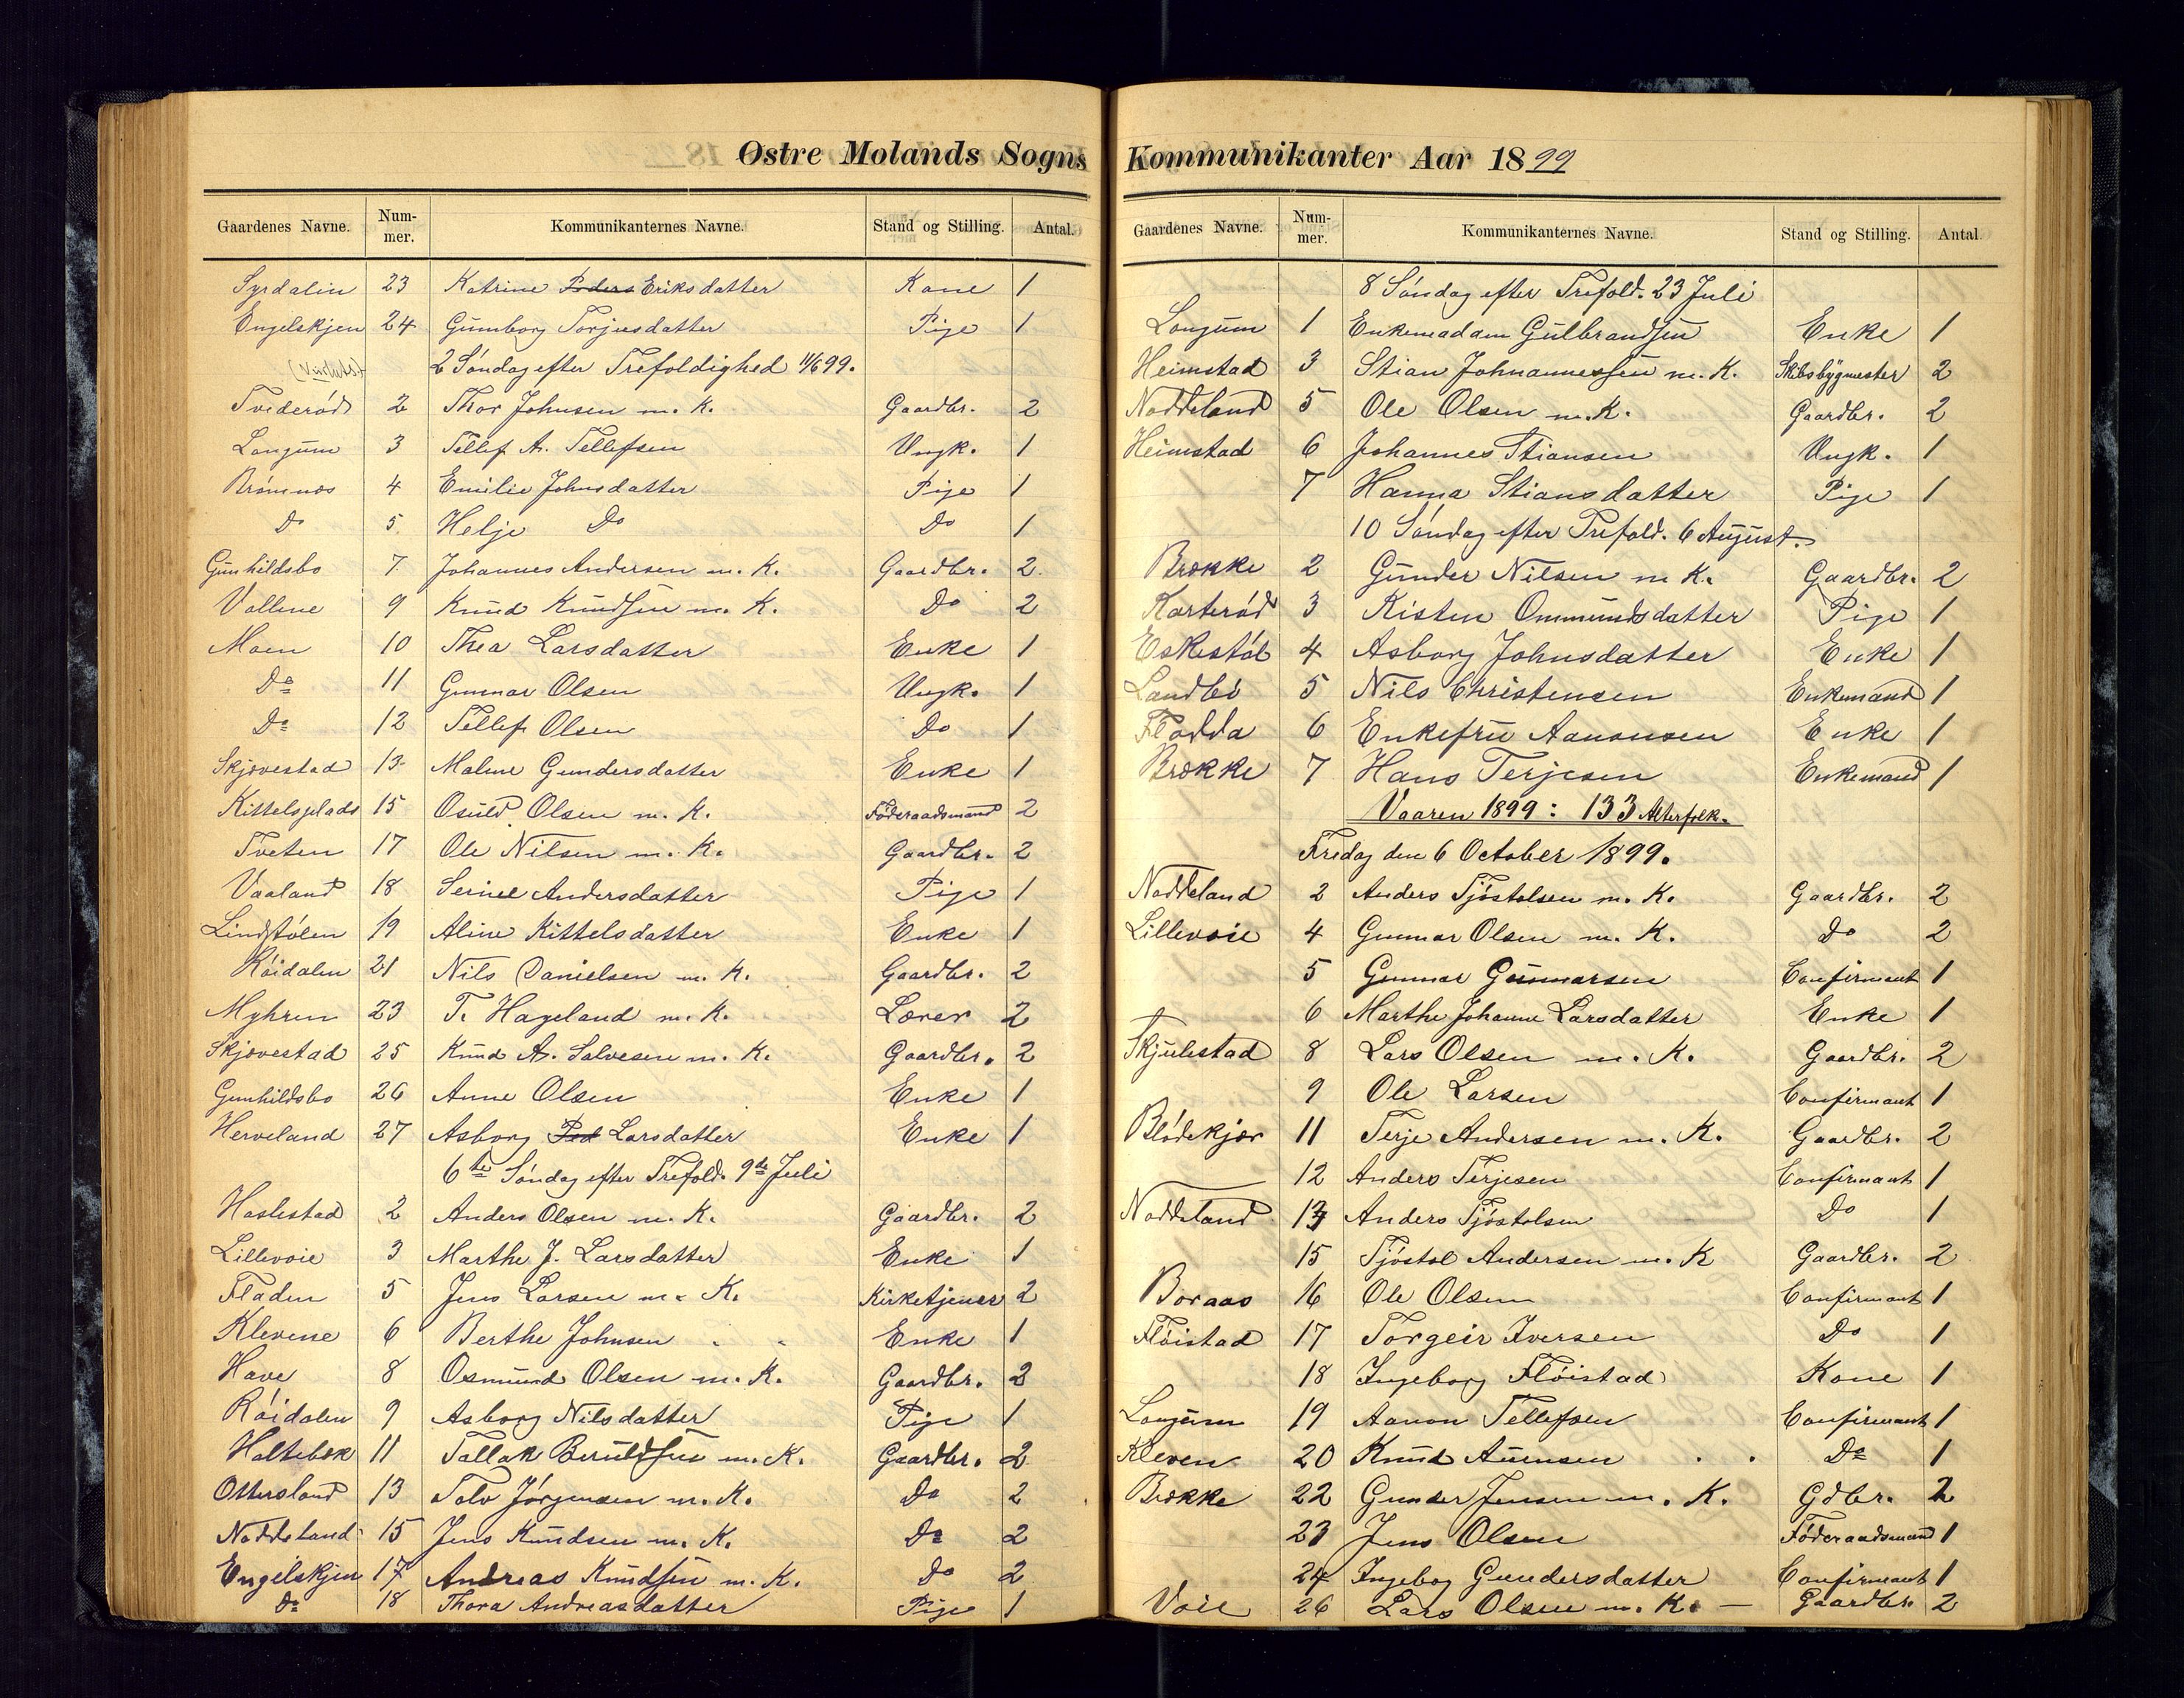 Østre Molands Sogns
Gaardenes Navne. Nummer. Kommunikanternes Navne. Stand og Stilling. Antal.
Syrdalen 23 Katrine Peders Eriksdatter Kone 1
Engelskjen 24 Gunborg Torjusdatter Pige 1
2 Søndag efter Trefoldighed 11/6 99.
Tviderød 2 Thor Johnsen m. K. Gaardbr. 2
Longum 3 Tellef A. Tellefsen Ungk. 1
Brømnes 4 Emilie Johnsdatter Pige 1
Do 5 Helje Do Do 1
Gunhildsbo 7 Johannes Andersen m. K. Gaardbr. 2
Vollene 9 Knud Knudsen m. K. Do 2
Moen 10 Thea Larsdatter Enke 1
Do 11 Gunnar Olsen Ungk. 1
Do 12 Tellef Olsen Do 1
Skjævestad 13 Malene Gundersdatter Enke 1
Kittelsplads 15 Osuld Olsen m. K. Føderaadsmand 2
Tveten 17 Ole Nilsen m. K. Gaardbr. 2
Vaaland 18 Serine Andersdatter Pige 1
Lindstølen 19 Aline Kittelsdatter Enke 1
Røidalen 21 Nils Danielsen m. K. Gaardbr. 2
Myhren 23 T. Hageland m. K. Lærer 2
Skjævestad 25 Knud A. Salvesen m. K. Gaardbr. 2
Gunhildsbo 26 Anne Olsen Enke 1
Herveland 27 Asborg Ped Larsdatter Enke 1
6te Søndag efter Trefold. 9de Juli
Haslestad 2 Anders Olsen m. K. Gaardbr. 2
Lillevoie 3 Marthe J. Larsdatter Enke 1
Fladen 5 Jens Larsen m. K. Kirketjener 2
Klevene 6 Berthe Johnsen Enke 1
Have 8 Osmund Olsen m. K. Gaardbr. 2
Røidalen 9 Asborg Nilsdatter Pige 1
Holtebæk 11 Tallak Beruldsen m. K. Gaardbr. 2
Ottersland 13 Tolv Jørgensen m. K. Do 2
Noddeland 15 Jens Knudsen m. K. Do 2
Engelskjen 17 Andreas Knudsen m. K. Do 2
Do 18 Thora Andreasdatter Pige 1
Kommunikanter Aar 1899
Gaardenes Navne. Nummer. Kommunikanternes Navne. Stand og Stilling. Antal.
8 Søndag efter Trefold. 23 Juli
Longum 1 Enkemadam Gulbrandsen Enke 1
Heimstad 3 Stian Johnannessen m. K. Skibsbygmester 2
Noddeland 5 Ole Olsen m. K. Gaardbr. 2
Heimstad 6 Johannes Stiansen Ungk. 1
7 Hanna Stiansdatter Pige 1
10 Søndag efter Trefold. 6 August.
Brække 2 Gunder Nilsen m K. Gaardbr. 2
Karterød 3 Kisten Ommundsdatter Pige 1
Eskestøl 4 Asborg Johnsdatter Enke 1
Landbö 5 Nils Christensen Enkemand 1
Flodda 6 Enkefru Aanonsen Enke 1
Brække 7 Hans Terjesen Enkemand 1
Vaaren 1899: 133 Alterfolk.
Fredag den 6 October 1899.
Noddeland 2 Anders Tjøstolsen m. K. Gaardbr. 2
Lillevoie 4 Gunnar Olsen m. K. Do 2
5 Gunnar Gunnarsen Confirmant 1
6 Marthe Johanne Larsdatter Enke 1
Skjulestad 8 Lars Olsen m. K. Gaardbr. 2
9 Ole Larsen Confirmant 1
Blødekjær 11 Terje Andersen m. K. Gaardbr. 2
12 Anders Terjesen Confirmant 1
Noddeland 13 Anders Tjøstolsen Do 1
15 Tjøstol Andersen m. K Gaardbr. 2
Boraas 16 Ole Olsen Confirmant 1
Fløistad 17 Torgeir Iversen Do 1
18 Ingeborg Fløistad Kone 1
Longum 19 Aanon Tellefsen Confirmant 1
Kleven 20 Knud Auensen Do 1
Brække 22 Gunder Jensen m. K. Gdbr. 2
23 Jens Olsen Føderaadsmand 1
24 Ingebog Gundersdatter Confirmant 1
Voie 26 Lars Olsen m. K. — Gaardbr. 2